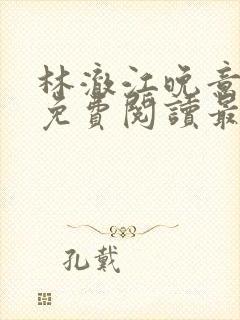 林澈江晚音
免費閱讀最
孔戴